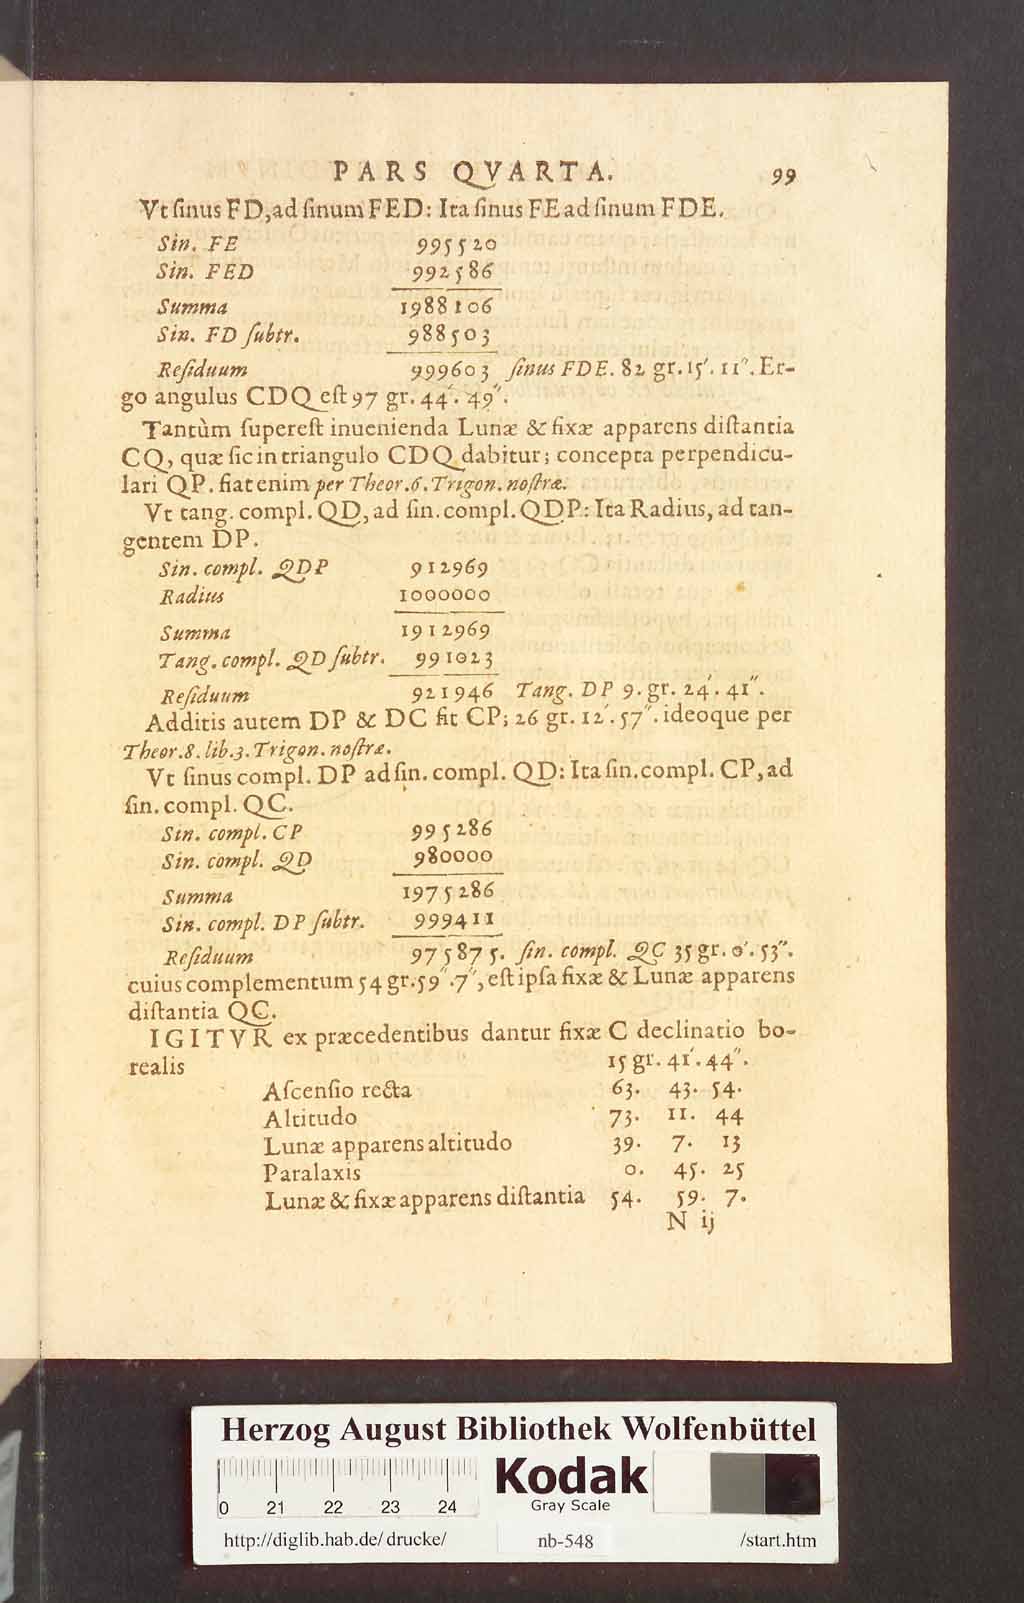 PARS QVARTA. 99
Vt ſinus FD, ad ſinum FED: Ita ſinus FE ad ſinum FDE.
Sin. FE 995520
Sin. FED 992586
Summa 1988106
Sin. FD ſubtr. 988503
Reſiduum 999603 ſinus FDE. 82 gr. 15′. 11″. Er-
go angulus CDQ eſt 97 gr. 44′. 49″.
Tantùm ſupereſt inuenienda Lunæ & fixæ apparens diſtantia
CQ, quæ ſic in triangulo CDQ dabitur; concepta perpendicu-
lari QP. fiat enim per Theor. 6. Trigon. noſtræ.
Vt tang. compl. QD, ad ſin. compl. QDP: Ita Radius, ad tan-
gentem DP.
Sin. compl. QDP 912969
Radius 1000000
Summa 1912969
Tang. compl. QD ſubtr. 991023
Reſiduum 921946 Tang. DP 9. gr. 24′. 41″.
Additis autem DP & DC fit CP; 26 gr. 12′. 57″. ideoque per
Theor. 8. lib. 3. Trigon. noſtræ.
Vt ſinus compl. DP ad ſin. compl. QD: Ita ſin. compl. CP, ad
ſin. compl. QC.
Sin. compl. CP 995286
Sin. compl. QD 980000
Summa 1975286
Sin. compl. DP ſubtr. 999411
Reſiduum 975875. ſin. compl. QC 35 gr. 0′. 53″.
cuius complementum 54 gr. 59″. 7″, eſt ipſa fixæ & Lunæ apparens
diſtantia QC.
IGITVR ex præcedentibus dantur fixæ C declinatio bo-
realis 15 gr. 41′. 44″.
Aſcenſio recta 63. 43. 54.
Altitudo 73. 11. 44
Lunæ apparens altitudo 39. 7. 13
Paralaxis 0. 45. 25
Lunæ & fixæ apparens diſtantia 54. 59. 7.
N ij
Herzog August Bibliothek Wolfenbüttel
0 21 22 23 24
Kodak
Gray Scale
http://diglib.hab.de/drucke/ nb-548 /start.htm